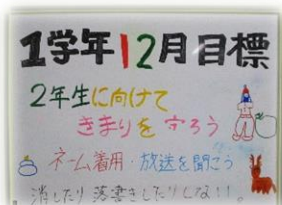 1学年12月目標
2年生に向けて
きまりを守ろう
ネーム着用・放送を聞こう
消したり落書きしたりしない。